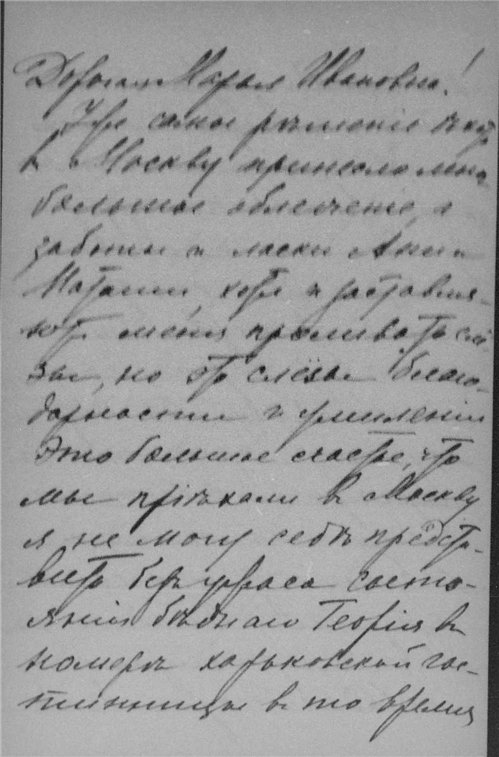 Дорогая Марья Ивановна!
Уже самое рѣшеніе ѣхать
в Москву принесло мне
большое облегченіе, а
заботы и ласки Ани и
Наташи, хотя и заставля-
ютъ меня проливать сле-
зы, но это слезы благо-
дарности и умиленія
Это большое счастье, что
мы пріѣхали в Москву
я не могу себѣ предст-
вить безъ ужаса состо-
янія бѣднаго Георгія в
номерѣ харьковской гос-
тинницы в то время